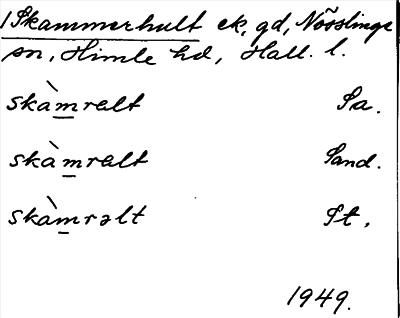 1 Skammerhult ek, gd, Nösslinge
sn, Himle hd, Hall. l.
skàm̲ralt Sa.
skàm̲ralt Sand.
skàm̲rəlt St.
1949.